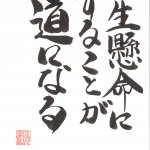 生懸命に
することが
道になる